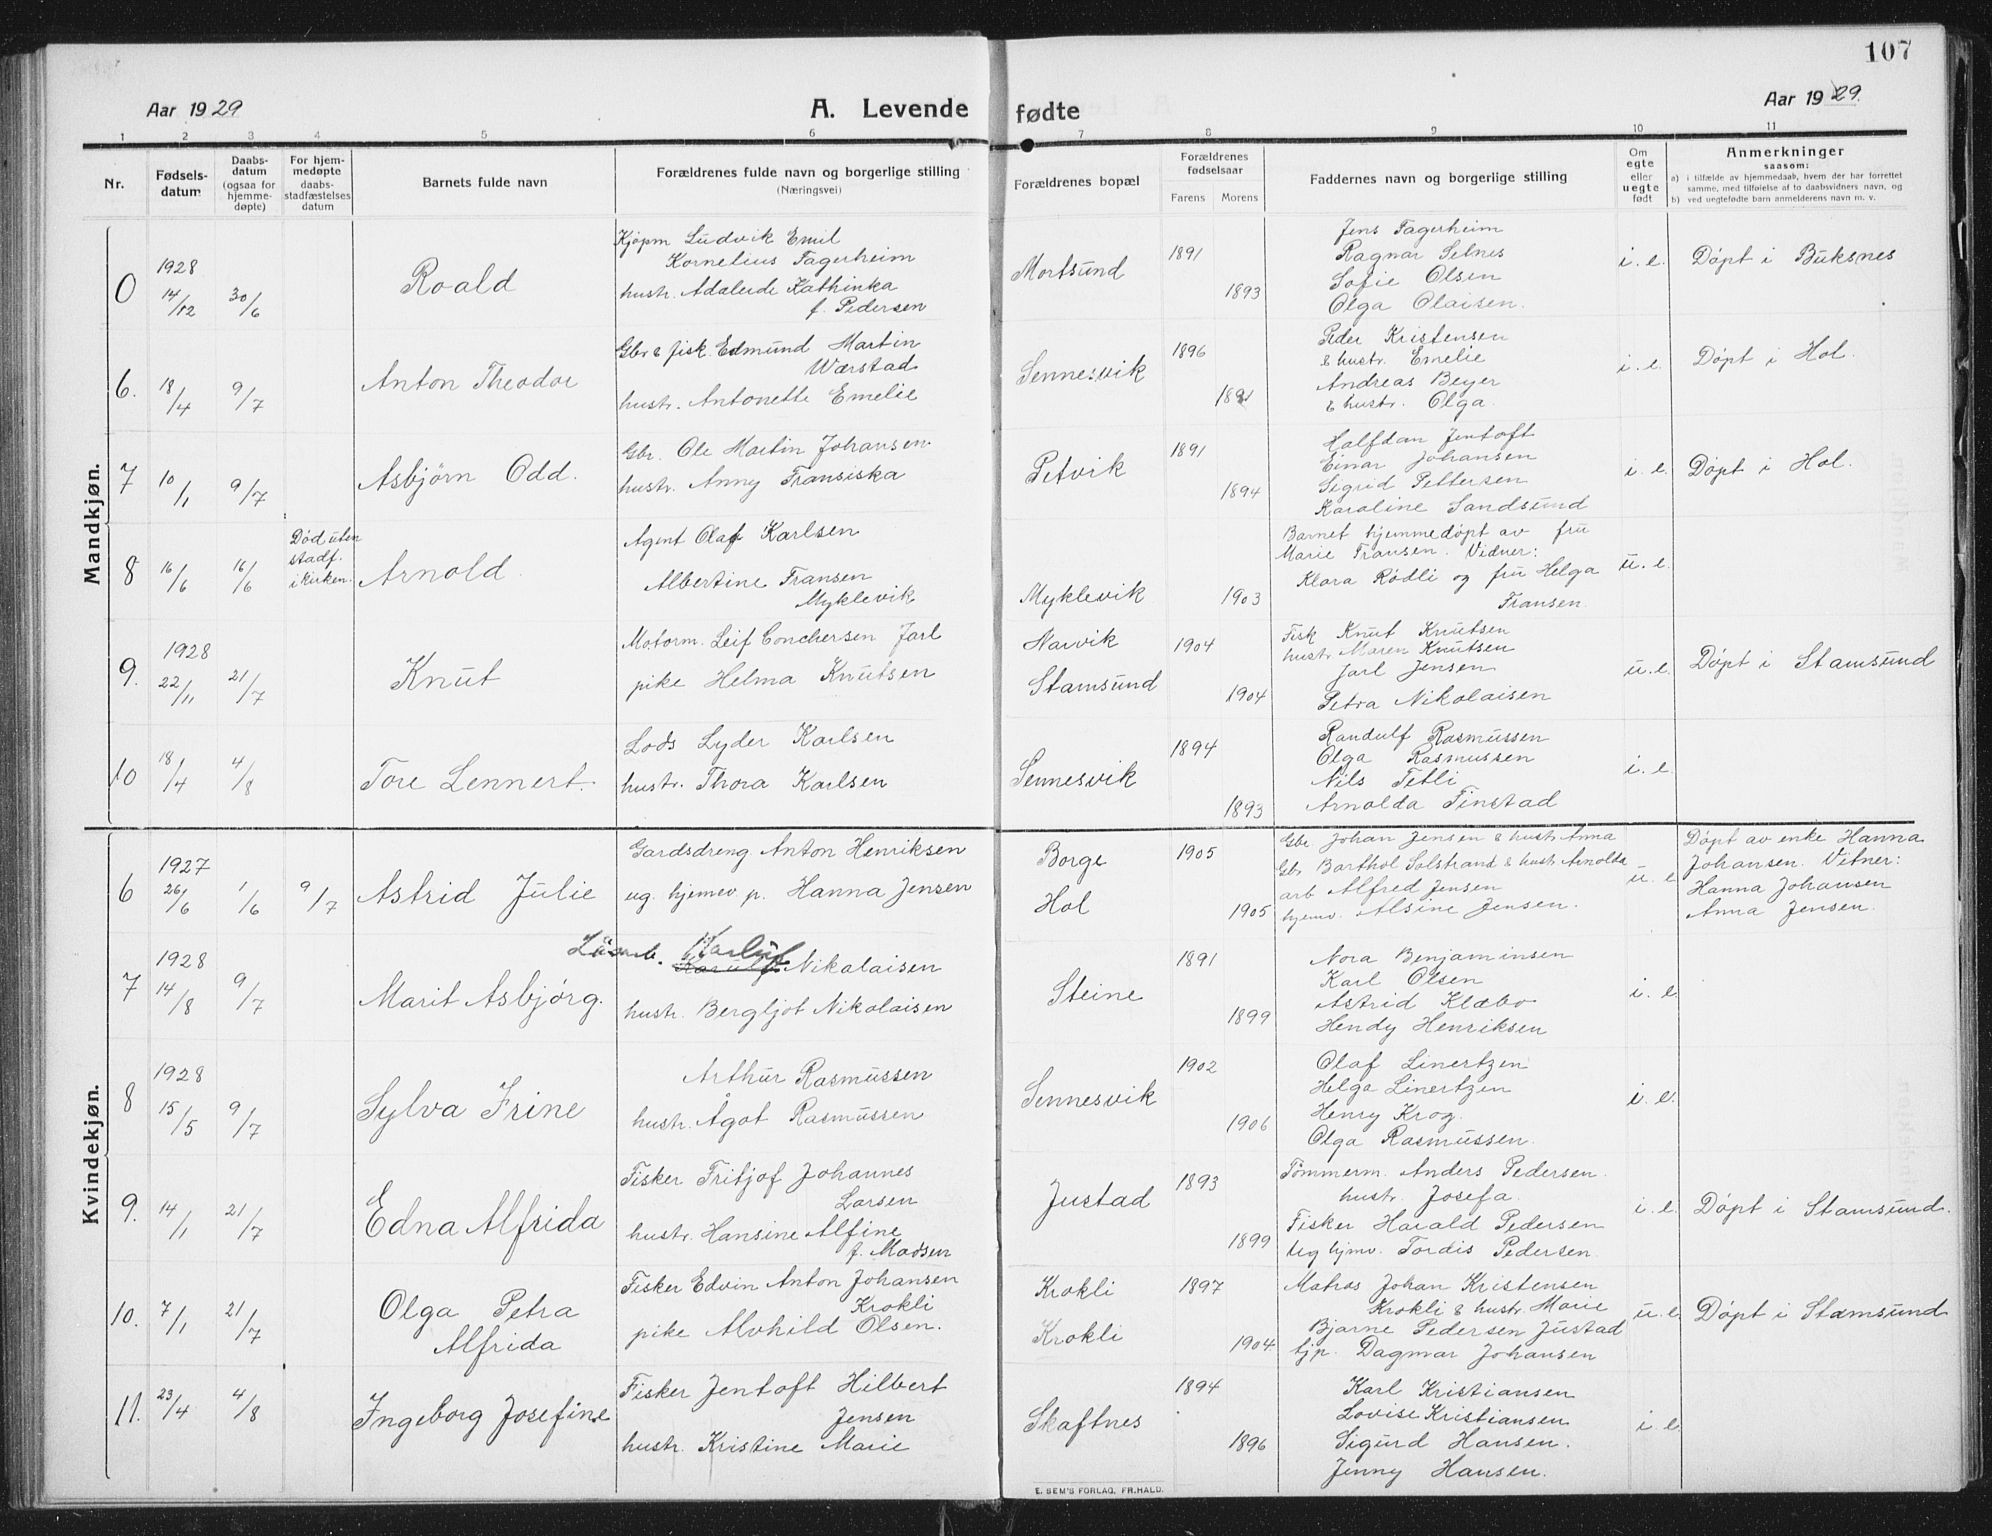 107
Aar 1929
A. Levende fødte
Aar 1929.
1 2 3 4 5 6 7 8 9 10 11
Nr.
Fødsels-
datum
Daabs-
datum
(ogsaa for
hjemme-
døpte)
For hjem-
medøpte
daabs-
stadfæstelses
datum
Barnets fulde navn
Forældrenes fulde navn og borgerlige stilling
(Næringsvei)
Forældrenes bopæl
Forældrenes
fødselsaar
Farens Morens
Faddernes navn og borgerlige stilling
Om
egte
eller
uegte
født
Anmerkninger
saasom:
a) i tilfælde av hjemmedaab, hvem der har forrettet
samme, med tilføielse af to daabsvidners navn, og
b) ved uegtefødte barn anmelderens navn m. v.
Mandkjøn.
0
1928
14/12 30/6
Roald
Kjøpm Ludvik Emil
Kornelius Fagerheim
hustr. Adaleide Kathinka
f. Pedersen
Mortsund
1891
1893
Jens Fagerheim
Ragnar Selnes
Sofie Olsen
Olga Olaisen.
i. e.
Døpt i Buksnes
6. 18/4 9/7
Anton Theodor
Gbr & fisk. Edmund Martin
Wærstad
hustr. Antonette Emelie
Sennesvik
1896
Peder Kristensen
& hustr. Emelie
Andreas Beyer
& hustr. Olga.
i. e.
Døpt i Hol.
7 10/1 9/7
Asbjørn Odd.
Gbr. Ole Martin Johansen.
hustr. Anny Fransiska
Petvik
1891
1894
Halfdan Jentoft
Einar Johansen
Sigrid Pettersen
Karoline Sandsund
i. e.
Døpt i Hol.
8 16/6 16/6
Død uten
stadf.
i kirken.
Arnold.
Agent Olaf Karlsen
Albertine Fransen
Myklevik
Myklevik
1903
Barnet hjemmedøpt av fru
Marie Fransen. Vidner:
Klara Rødli og fru Helga
Fransen.
u. e.
9. 1928
22/11 21/7
Knut
Motorm. Leif Conchersen Jarl
pike Helma Knutsen
Narvik
Stamsund
1904
1904
Fisk Knut Knutsen
hustr Maren Knutsen
Jarl Jensen
Petra Nikolaisen
u. e.
Døpt i Stamsund
10 18/4 4/8
Tore Lennert.
Lods Lyder Karlsen
hustr. Thora Karlsen
Sennesvik
1894
1893
Randulf Rasmussen
Olga Rasmussen
Nils Tetli
Arnolda Finstad
i. e.
Kvindekjøn.
6 1927
26/6 1/6 9/7
Astrid Julie
Gardsdreng Anton Henriksen
ug. hjemev p. Hanna Jensen
Borge
Hol
1905
1905
Gbr. Johan Jensen & hustr. Anna
Gbr Barthol Solstrand & hustr Arnolda
arb Alfred Jensen
hjemv. Alsine Jensen.
u. e
Døpt av enke Hanna
Johansen. Vitner:
Hanna Johansen
Anna Jensen.
7 1928
14/8 9/7
Marit Asbjørg.
Karluf
Nikolaisen
hustr. Bergljot Nikolaisen
Steine
1891
1899
Nora Benjaminsen
Karl Olsen
Astrid Klæbo
Hendy Henriksen
i. e.
8 1928
15/5 9/7
Sylva Irine
Arthur Rasmussen
hustr. Ågot Rasmussen
Sennesvik
1902
1906
Olaf Linertzen
Helga Linertzen
Henry Krog.
Olga Rasmussen.
i. e.
9. 14/1 21/7
Edna Alfrida
Fisker Fritjof Johannes
Larsen
hustr. Hansine Alfine
f. Madsen
Justad
1893
1899
Tømmerm. Anders Pedersen.
hustr. Josefa.
Fisker Harald Pedersen
ug hjmv. Tordis Pedersen.
i. e.
Døpt i Stamsund.
10. 7/1 21/7
Olga Petra
Alfrida
Fisker Edvin Anton Johansen
Krokli
pike Alvhild Olsen.
Krokli
Krokli
1897
1904
Matros Johan Kristensen
Krokli & hustr. Marie
Bjarne Pedersen Justad
tjp. Dagmar Johansen
u. e
Døpt i Stamsund
11. 23/4 4/8
Ingeborg Josefine
Fisker Jentoft Hilbert
Jensen
hustr. Kristine Marie
Skaftnes
1894
1896
Karl Kristiansen
Lovise Kristiansen
Sigurd Hansen.
Jenny Hansen.
i. e.
E. SEM'S FORLAG, FR.HALD.